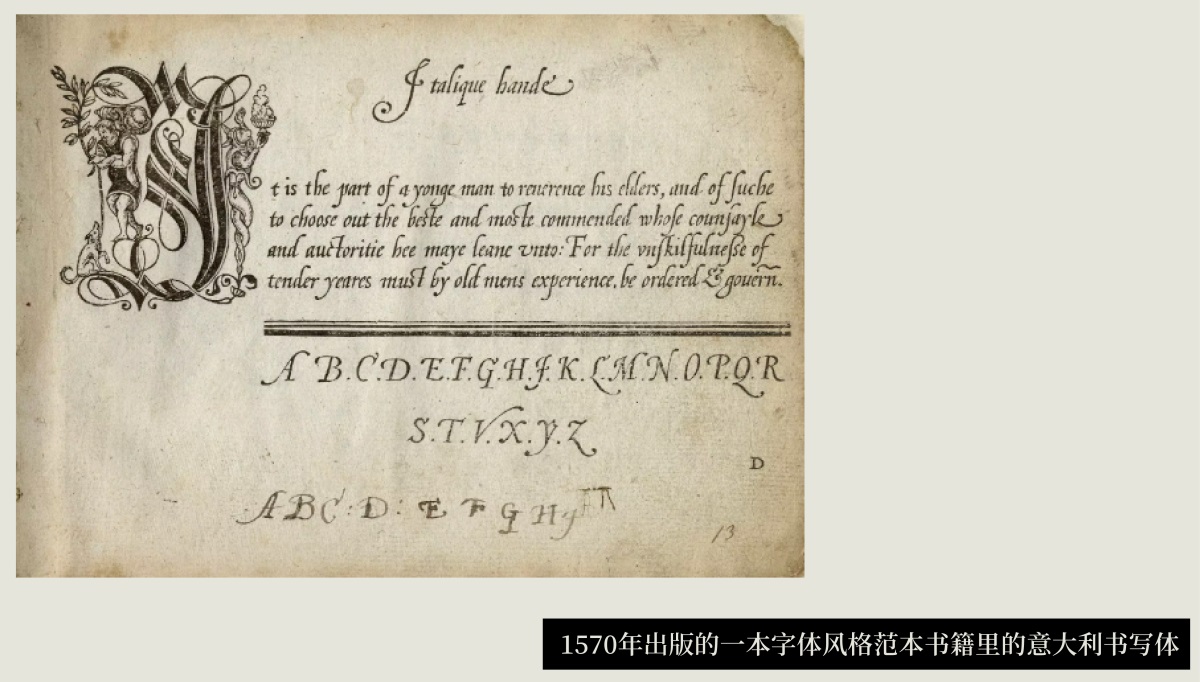 Italique hande
It is the part of a yonge man to reuerence his elders, and of suche
to choose out the beste and moste commended whose counsayle
and auctoritie hee maye leane vnto: For the vnskilfulnesse of
tender yeares must by old mens experience, be ordered & gouern̄.
A B.C.D.E.F.G.H.J.K.L.M.N.O.P.Q.R
S.T.V.X.y.Z
D
A B C : D : E F G H
13
1570年出版的一本字体风格范本书籍里的意大利书写体